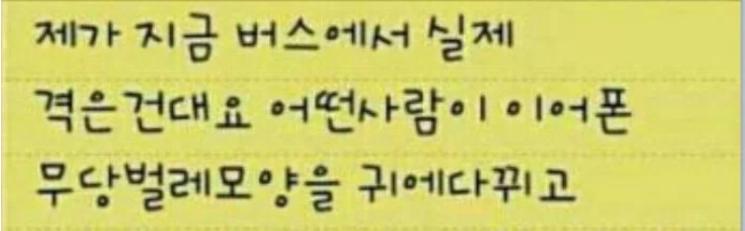 제가 지금 버스에서 실제
격은건대요 어떤사람이 이어폰
무당벌레모양을 귀에다뀌고